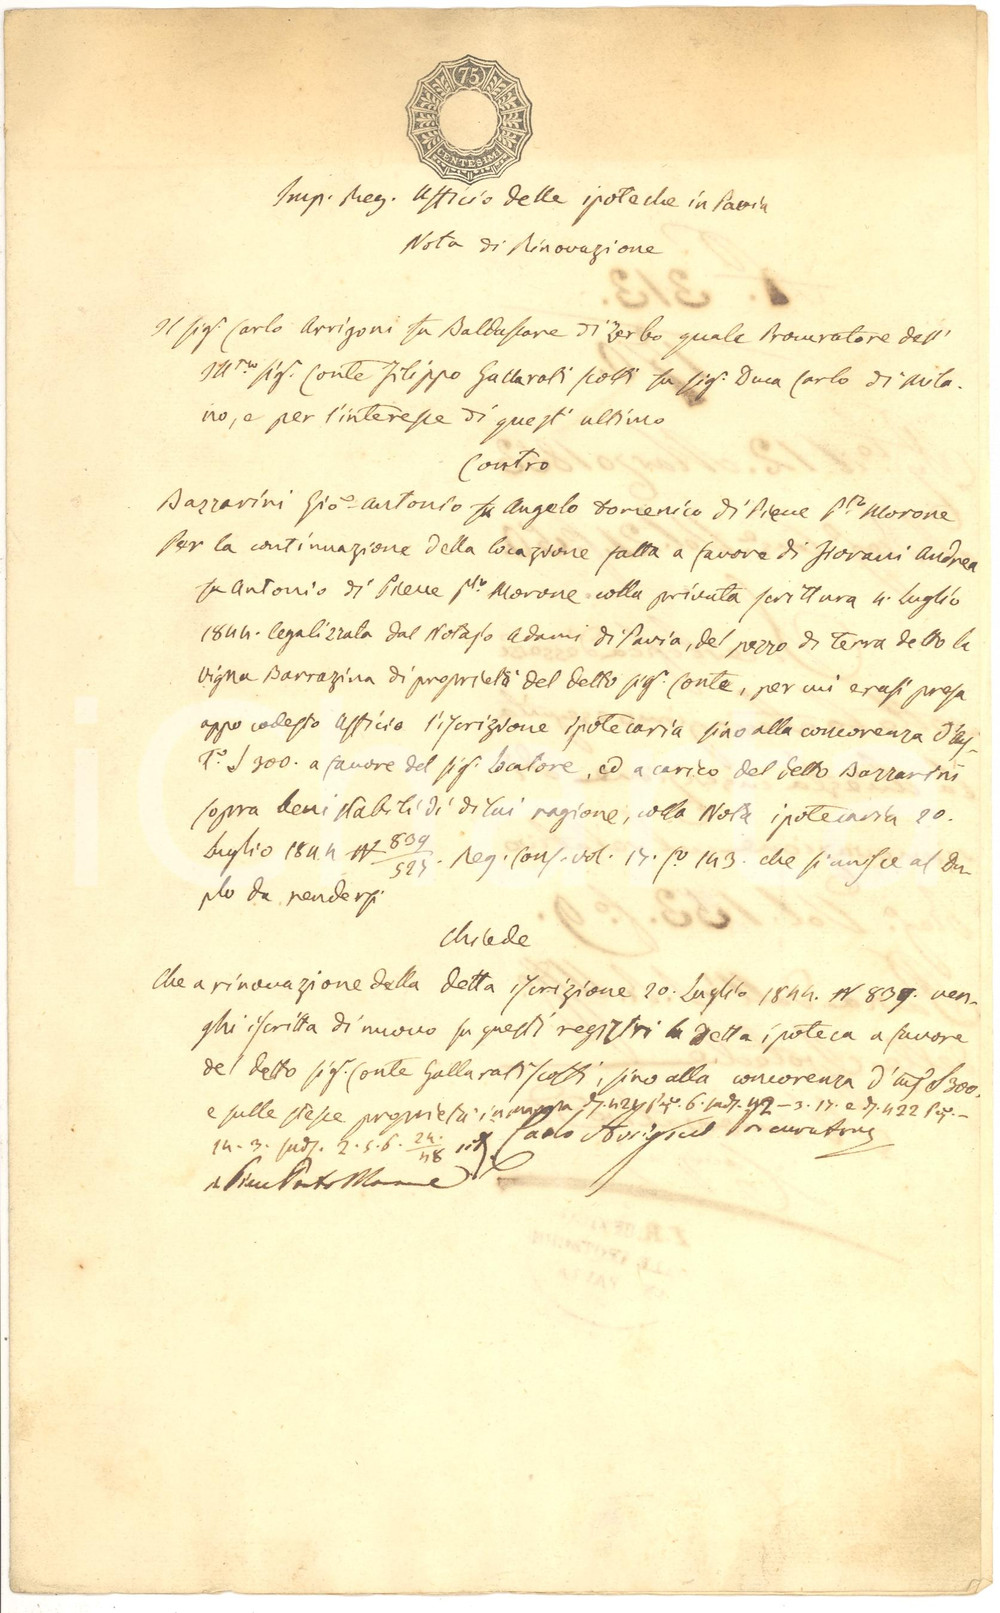 75
CENTESIMI
Imp. Reg. Ufficio delle ipoteche in Pavia
Nota di Rinovazione
Il sig.r Carlo Arrigoni fu Baldassare di Zerbo quale Procuratore dell'
Ill.mo sig.r Conte Filippo Gallarati Scotti fu sig.r Duca Carlo di Mila-
no, e per l'interesse di quest'ultimo
Contro
Bazzarini Gio. Antonio fu Angelo Domenico di Pieve P.to Morone
Per la continuazione della locazione fatta a favore di Giovani Andrea
fu Antonio di Pieve P.to Morone colla privata scrittura 4. Luglio
1844. legalizzata dal Notajo Adami di Pavia, del pezzo di terra detto la
vigna Barrazina di proprietà del detto sig.r Conte, per cui erasi presa
appo codesto Ufficio l'iscrizione ipotecaria sino alla concorenza d'
300. a favore del sig.r locatore, ed a carico del detto Bazzarini
sopra beni stabili di di lui ragione, colla Nota ipotecaria 20.
Luglio 1844 N 839/525. Reg. Conf. vol. 17. fo 143. che si unisce al du-
plo da rendersi
Chiede
Che a rinovazione della detta iscrizione 20. Luglio 1844. N 839. ven-
ghi iscritta di nuovo su questi registri la detta ipoteca a favore
del detto sig.r Conte Gallarati Scotti, sino alla concorenza d' 300.
e sulle stesse proprietà in mappa 6. 42 - 3. 17. e 422
14. 3. 2. 5. 6. 24./48 Carlo Arrigoni Procuratore
a Pieve Porto Morone